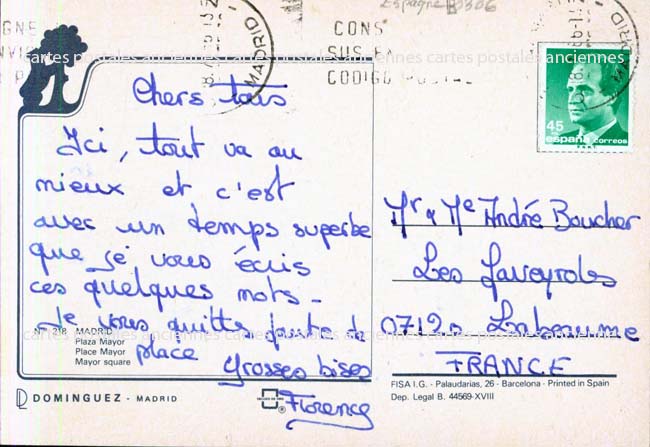 Espagne
CONS
CODIGO
MADRID
MADRID
45
españa correos
cartes postales anciennes cartes postales anciennes cartes postales anciennes
Chers tous
Ici, tout va au
mieux et c'est
avec un temps superbe
que je vous écris
ces quelques mots -
Je vous quitte faute de
place
Grosses bises
Florence
Mr & Me André Boucher
Les
07120 Labeaume
FRANCE
N.º 218 MADRID
Plaza Mayor
Place Mayor
Mayor square
DOMINGUEZ - MADRID
FISA I.G. - Palaudarias, 26 - Barcelona - Printed in Spain
Dep. Legal B. 44569-XVIII